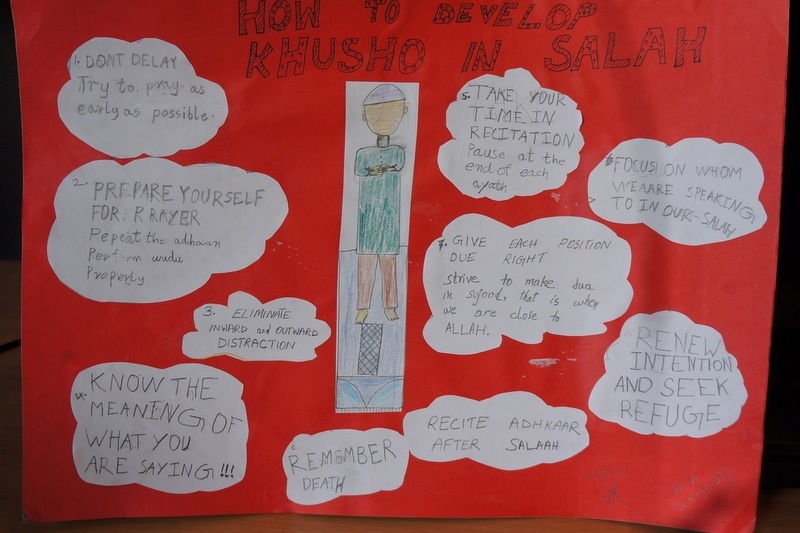 HOW TO DEVELOP
KHUSHO IN SALAH
1. DONT DELAY
Try to pray as
early as possible.
2. PREPARE YOURSELF
FOR PRAYER
Repeat the adhaan
Perform wudu
Properly
3. ELIMINATE
INWARD and OUTWARD
DISTRACTION
4. KNOW THE
MEANING OF
WHAT YOU
ARE SAYING!!!
5. TAKE YOUR
TIME IN
RECITATION
Pause at the
end of each
ayath
6 FOCUS ON WHOM
WE ARE SPEAKING
TO IN OUR SALAH
7. GIVE EACH POSITION
DUE RIGHT
strive to make dua
in sujood, that is when
we are close to
ALLAH.
RENEW
INTENTION
AND SEEK
REFUGE
RECITE ADHKAAR
AFTER SALAAH
REMEMBER
DEATH